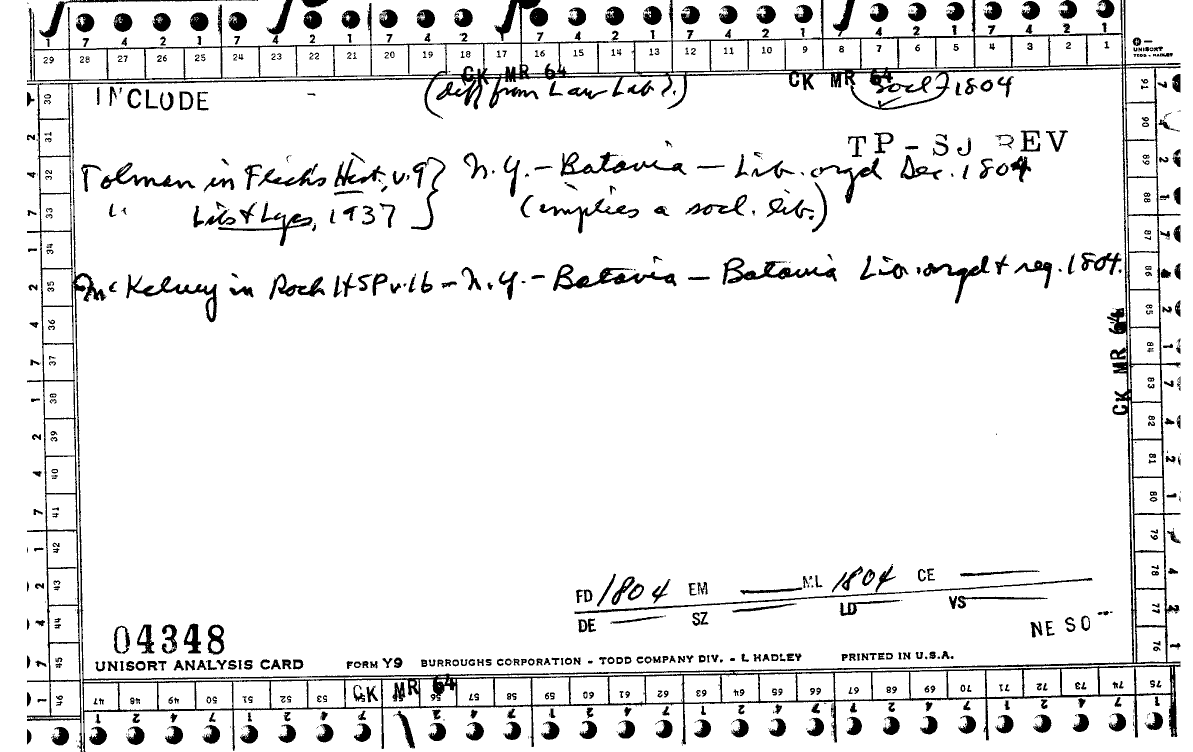 1 7 4 2 1 7 4 2 1 7 4 2 1 7 4 2 1 7 4 2 1 7 4 2 1 7 4 2 1
29 28 27 26 25 24 23 22 21 20 19 18 17 16 15 14 13 12 11 10 9 8 7 6 5 4 3 2 1
UNISORT
TODD - HADLEY
CK MR 64 CK MR 64
INCLUDE (diff from Law Lib?.) Socl - 1804
TP - SJ REV
Tolman in Flick's Hist, v.9 } N.Y. - Batavia - Lib. orgd Dec. 1804
" Libs & Lycs, 1937 } (implies a socl. lib.)
McKelvey in Roch HSP v.16 - N.Y. - Batavia - Batavia Lib. orgd & reg. 1804.
CK MR 64
FD 1804 EM ML 1804 CE
DE SZ LD VS
NE SO
04348
UNISORT ANALYSIS CARD FORM Y9 BURROUGHS CORPORATION - TODD COMPANY DIV. - L HADLEY PRINTED IN U.S.A.
CK MR 64
46 47 48 49 50 51 52 53 54 55 56 57 58 59 60 61 62 63 64 65 66 67 68 69 70 71 72 73 74 75
30 31 32 33 34 35 36 37 38 39 40 41 42 43 44 45
91 90 89 88 87 86 85 84 83 82 81 80 79 78 77 76